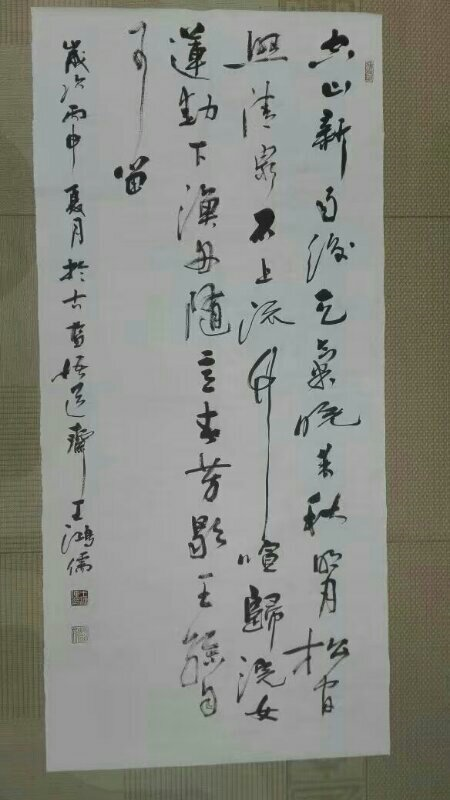 空山新雨後天氣晚来秋明月松间
照清泉石上流竹喧歸浣女
蓮動下漁舟隨意春芳歇王孫自
可留
歲次丙申夏月於古悟道齋王鴻儒